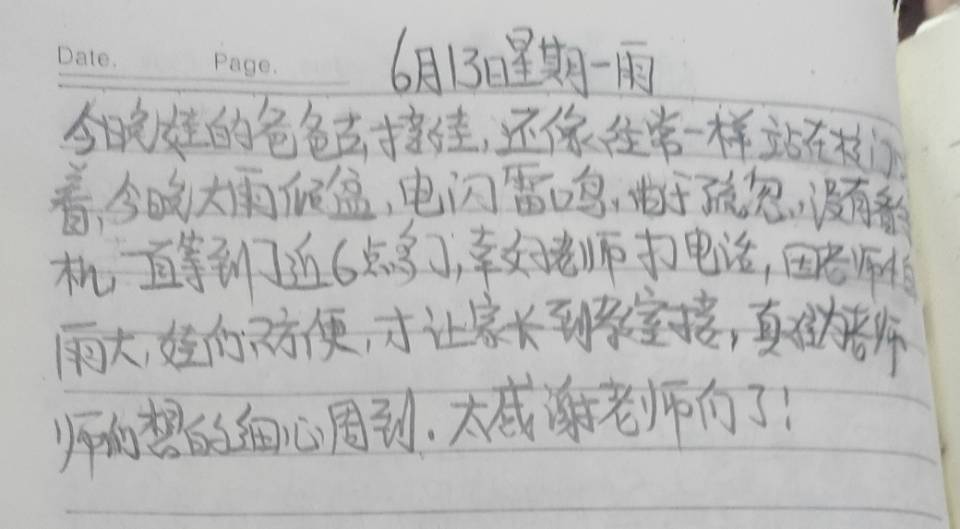 Date.
Page.
6月13日星期一雨
今晚娃的爸爸去接娃,还像往常一样站在校门
着,今晚大雨倾盆,电闪雷鸣,由于疏忽,没有看
机,一直等到了近6点多了,幸好老师打电话,因老师怕
雨大,娃们不方便,才让家长到教室接,真为老师
师们想的细心周到.太感谢老师们了!